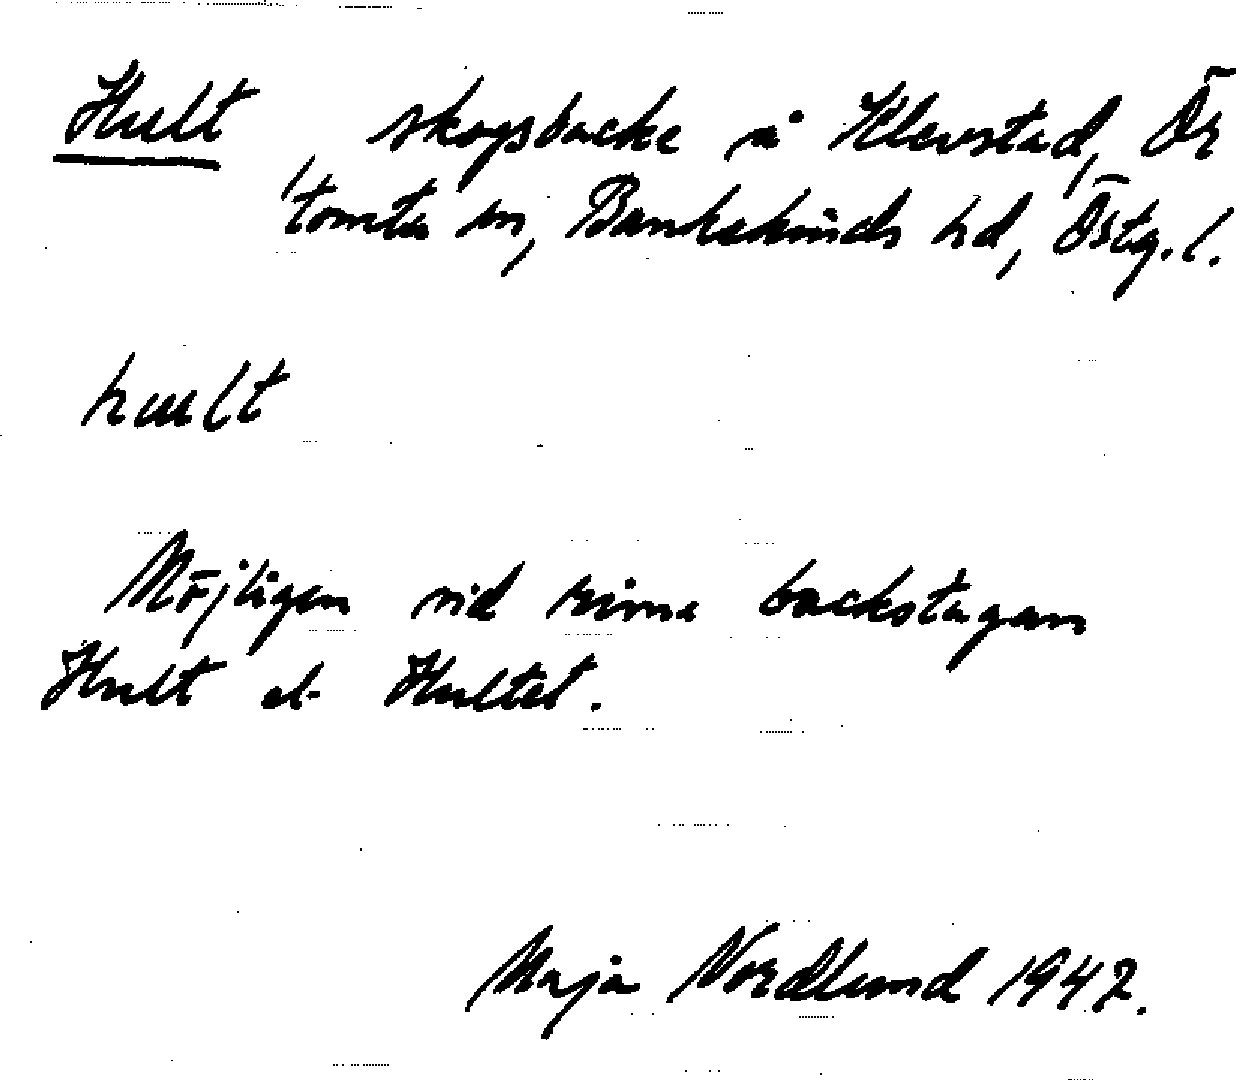 Hult, skogsbacke å Klevstad, Ör
tomta sn, Bankekinds hd, Östg. l.
hult
Möjligen vid rivna backstugan
Hult el. Hultet.
Maja Nordlund 1942.